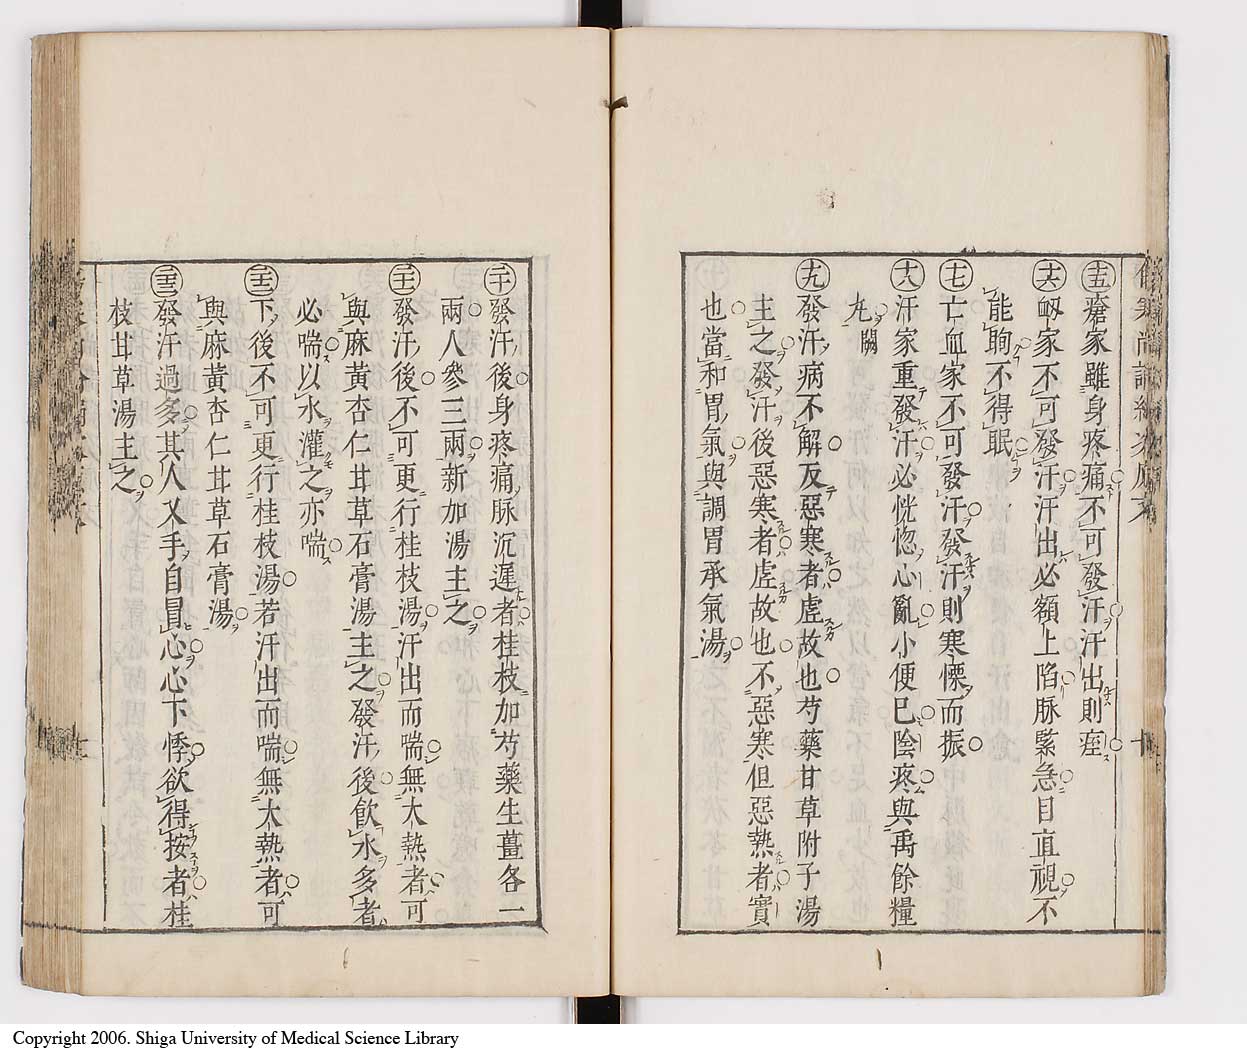 十五 瘡家雖身疼痛不可發汗汗出則痓
十六 衂家不可發汗汗出必額上陷脉緊急目直視不
能眴不得眠
十七 亡血家不可發汗發汗則寒慄而振
十八 汗家重發汗必恍惚心亂小便已陰疼與禹餘糧
丸闕
十九 發汗病不解反惡寒者虛故也芍藥甘草附子湯
主之發汗後惡寒者虛故也不惡寒但惡熱者實
也當和胃氣與調胃承氣湯
二十 發汗後身疼痛脉沉遲者桂枝加芍藥生薑各一
兩人參三兩新加湯主之
發汗後不可更行桂枝湯汗出而喘無大熱者可
與麻黃杏仁甘草石膏湯主之發汗後飲水多者
必喘以水灌之亦喘
下後不可更行桂枝湯若汗出而喘無大熱者可
與麻黃杏仁甘草石膏湯
發汗過多其人叉手自冒心心下悸欲得按者桂
枝甘草湯主之
Copyright 2006. Shiga University of Medical Science Library